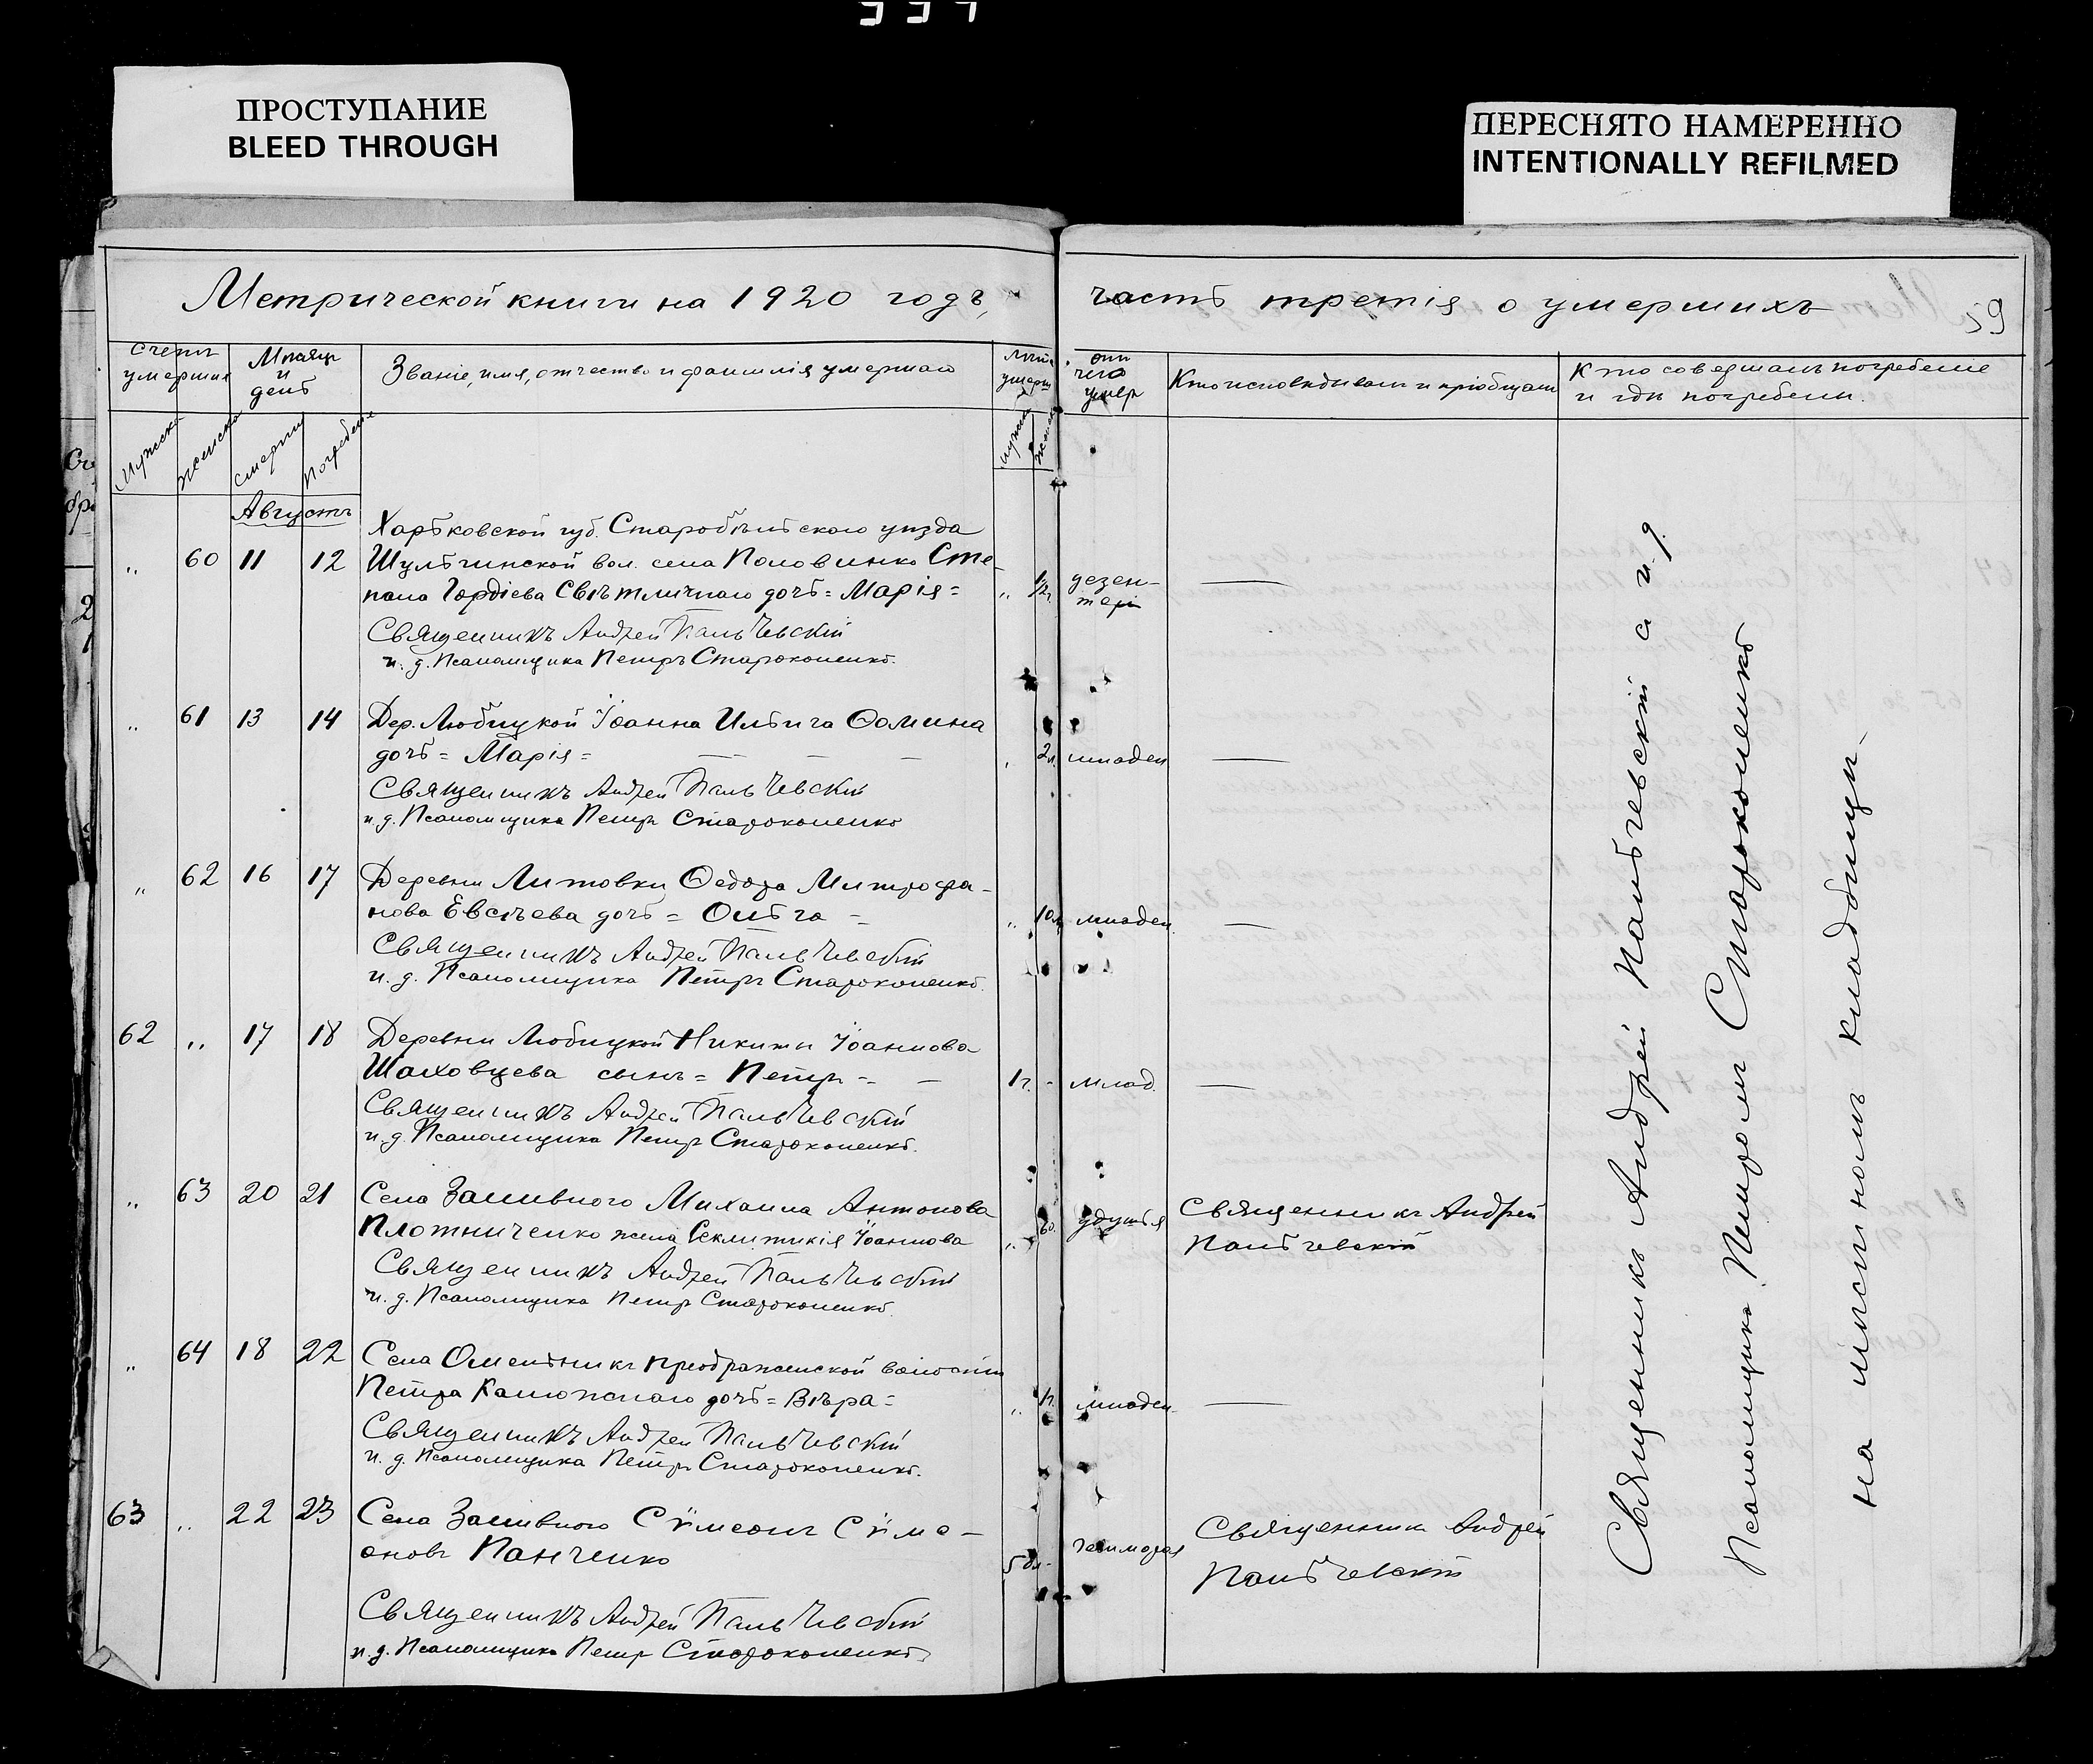 ПРОСТУПАНИЕ
BLEED THROUGH
ПЕРЕСНЯТО НАМЕРЕННО
INTENTIONALLY REFILMED
Метрической книги на 1920 годъ,
часть третія о умершихъ
59
Счетъ умершихъ
Мѣсяцъ и день
Званіе, имя, отчество и фамилія умершаго
Лѣта умерш
отъ чего умеръ
Кто исповѣдывалъ и пріобщалъ
Кто совершалъ погребеніе и гдѣ погребены.
Мужска
женска
смерти
погребенія
Августъ
Харьковской губ. Старобѣльскаго уѣзда
" 60 11 12 Шульгинской вол. села Половинко Сте-
пана Гордіева Свѣтличнаго дочь = Марія = " 1/2 г дезен-
терія —
Священникъ Андрей Пальчевскій
и. д. Псаломщика Петръ Староконенко.
" 61 13 14 Дер. Любицкой Іоанна Ильича Ѳомина
дочь = Марія = — — — 2 младен —
Священникъ Андрей Пальчевскій
и. д. Псаломщика Петръ Староконенко
" 62 16 17 Деревни Литовки Ѳедора Митрофа-
нова Евсѣева дочь = Ольга = " 10 м младен. —
Священникъ Андрей Пальчевскій
и. д. Псаломщика Петръ Староконенко.
62 " 17 18 Деревни Любицкой Никиты Іоаннова
Шаховцева сынъ = Петръ = — 1 г. - млад. —
Священникъ Андрей Пальчевскій
и. д. Псаломщика Петръ Староконенко.
" 63 20 21 Села Заливного Михаила Антонова
Плотниченко жена Іоаннова " 60. удушья Священникъ Андрей
Пальчевскій
Священникъ Андрей Пальчевскій
и. д. Псаломщика Петръ Староконенко
" 64 18 22 Села Омельникъ Преображенской волости
Петра Калюжнаго дочь = Вѣра = " 1 г. младен. —
Священникъ Андрей Пальчевскій
и. д. Псаломщика Петръ Староконенко.
63 " 22 23 Села Заливного Сѵмеонъ Сѵме-
оновъ Панченко Священникъ Андрей
Пальчевскій
Священникъ Андрей Пальчевскій
и. д. Псаломщика Петръ Староконенко
Священникъ Андрей Пальчевскій а и. д.
Псаломщика Петромъ Староконенко
на мѣстномъ кладбищѣ.